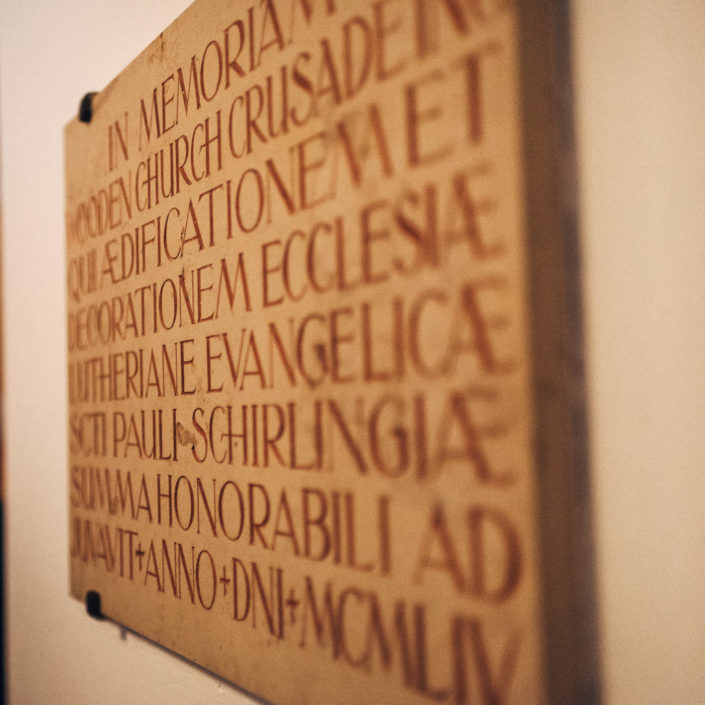 IN MEMORIAM
WOODEN CHURCH CRUSADE INC
QUI ÆDIFICATIONEM ET
DECORATIONEM ECCLESIÆ
LUTHERIANE EVANGELICÆ
SCTI PAULI SCHIRLINGIÆ
SUMMA HONORABILI AD
JUNAVIT+ANNO+DNI+MCMLIV